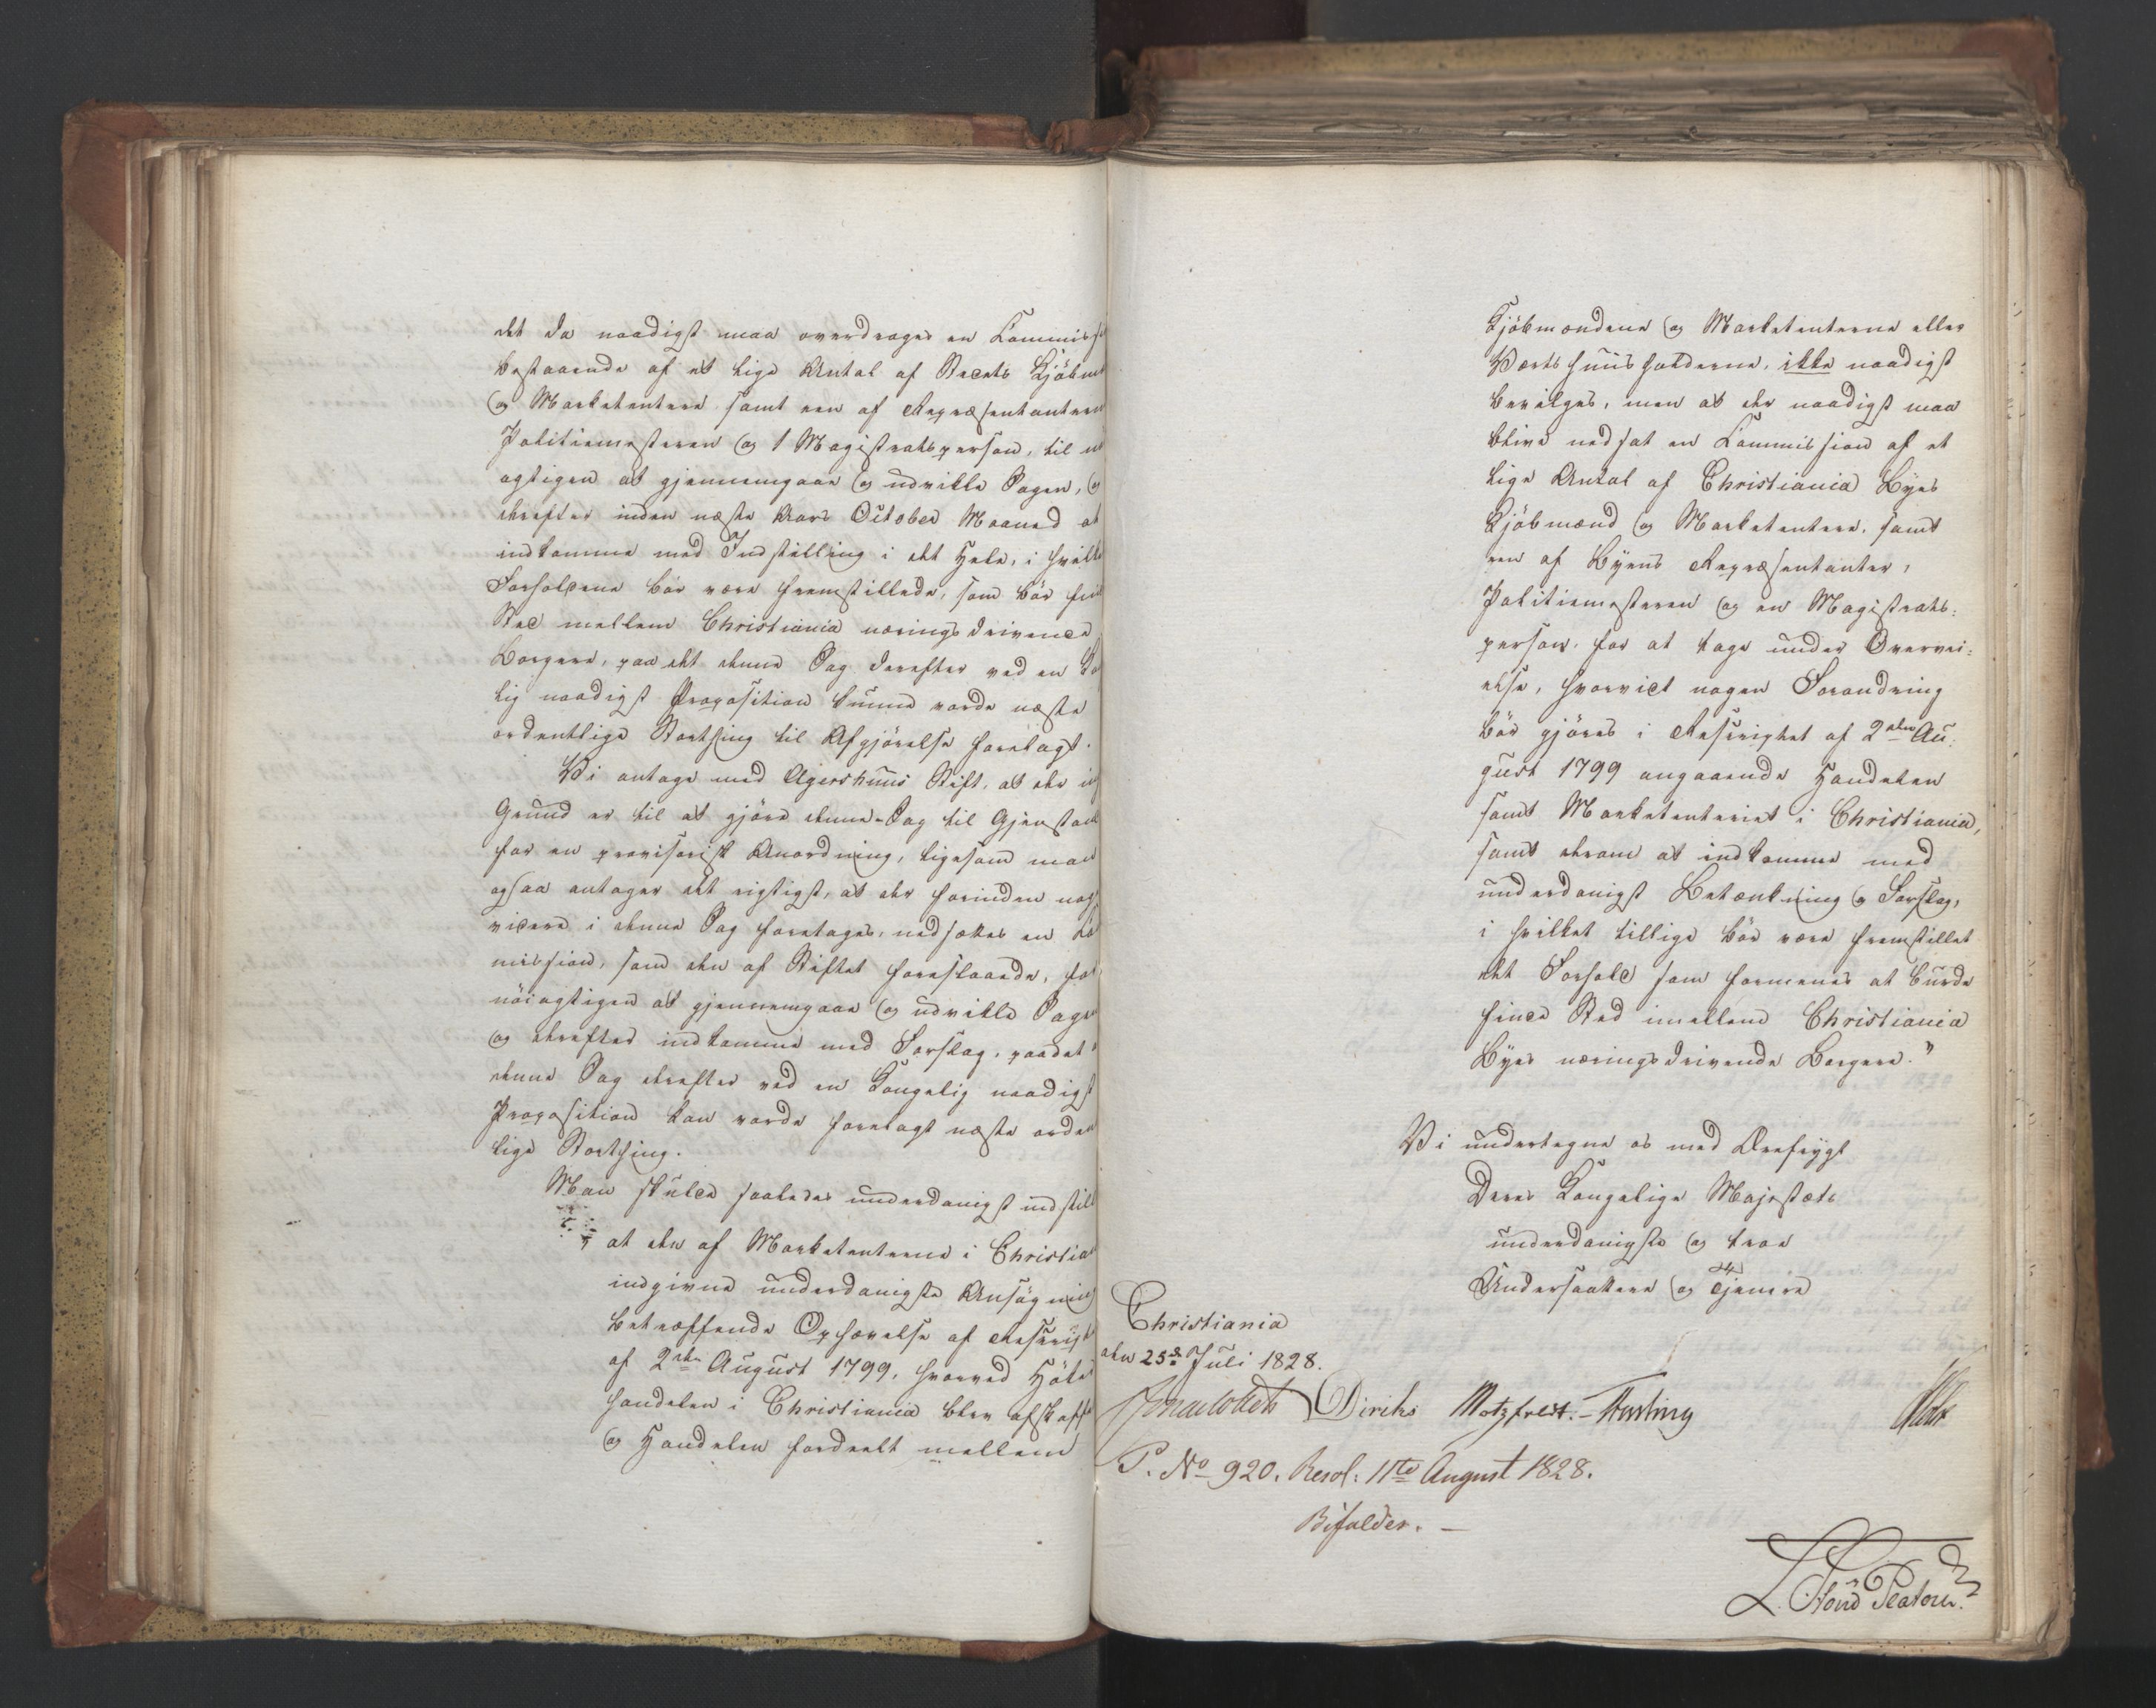 det da naadigst maa overdrages en Commiss
bestaaende af et lige Antal af Stedets Kjöbm
og Marketentere samt een af Repræsentanterne
Politiemesteren og 1 Magistratsperson, til nö
agtigen at gjennemgaae og udvikle Sagen, og
derefter inden næste Aars October Maaned at
indkomme med Indstilling i det Hele, i hvilke
Forholdene bör være fremstillede, som bör finde
Sted mellem Christiania næringsdrivende
Borgere, paa det denne Sag derefter ved en Ko
lig naadigst Proposition kunne vorde næste
ordentlige Storthing til Afgjörelse forelagt.
Vi antage med Agershuus Stift, at der in
Grund er til at gjöre denne Sag til Gjenstand
for en provisorisk Anordning, ligesom man
ogsaa antager det rigtigst, at der forinden nog
videre i denne Sag foretages, nedsættes en Co
mission, som den af Stiftet foreslaaede, for
nöiagtigen at gjennemgaae og udvikle Sagen
og derefter indkomme med Forslag, paadet
denne Sag derefter ved en Kongelig naadigst
Proposition kan vorde forelagt næste orden
lige Storthing.
Man skulde saaledes underdanigst indstill
" at den af Marketenterne i Christia
indgivne underdanigste Ansögning
betræffende Ophævelse af Rescript
af 2den August 1799, hvorved Höker
handelen i Christiania blev afskaffet
og Handelen fordeelt mellem
Kjöbmændene og Marketenterne eller
Værtshuusholderne, ikke naadigst
bevilges, men at der naadigst maa
blive nedsat en Commission af et
lige Antal af Christiania Byes
Kjöbmænd og Marketentere, samt
een af Byens Repræsentanter,
Politiemesteren og en Magistrats:
person, for at tage under Overvei:
else, hvorvidt nogen Forandring
bör gjöres i Rescriptet af 2den Au:
gust 1799 angaaende Handelen
samt Marketenteriet i Christiania,
samt derom at indkomme med
underdanigst Betænkning og Forslag,
i hvilket tillige bör være fremstillet
det Forhold som formenes at burde
finde Sted imellem Christiania
Byes næringsdrivende Borgere."
Vi undertegne os med Ærefrygt
Deres Kongelige Majestæts
underdanigste og troe
Undersaattere og Tjenere
Christiania
den 25de Juli 1828.
Jonas Collett Diriks Motzfeldt. Fasting
P. No 920. Resol: 11te August 1828.
Bifalder. —